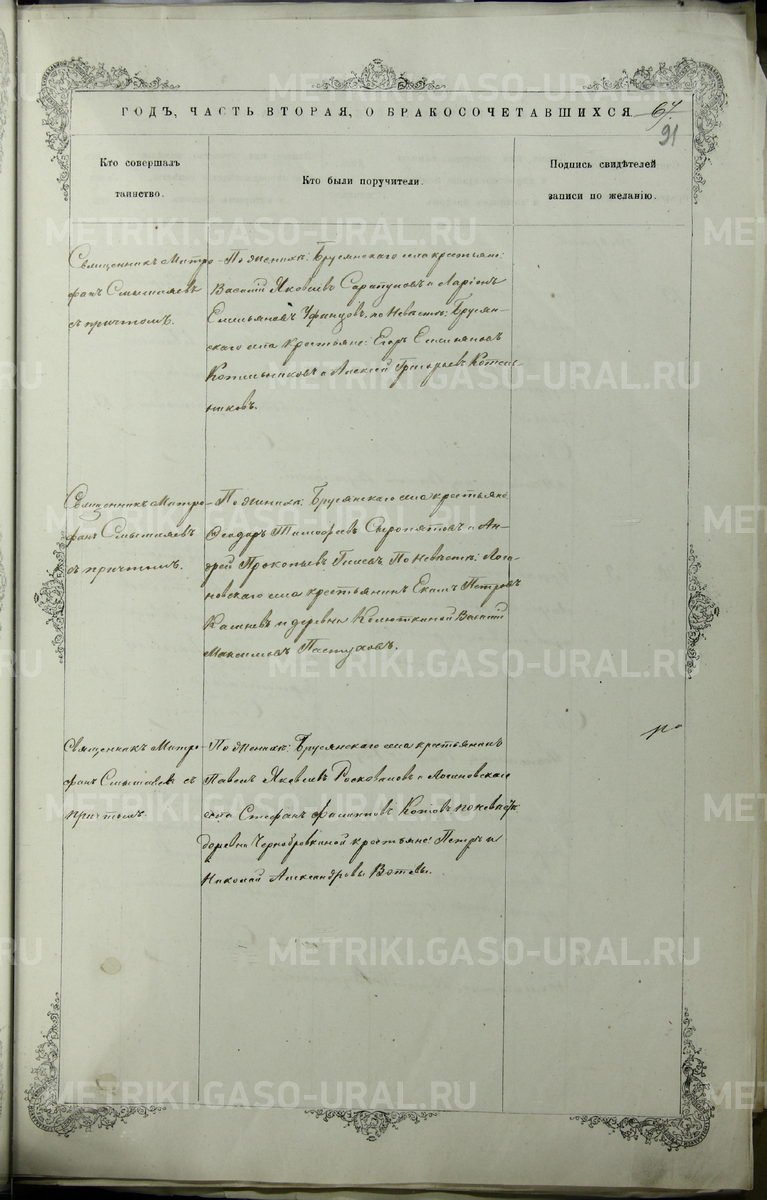 ГОДЪ, ЧАСТЬ ВТОРАЯ, О БРАКОСОЧЕТАВШИХСЯ
67
91
Кто совершалъ
таинство.
Кто были поручители.
Подпись свидѣтелей
записи по желанію.
Священникъ Митро-
фанъ
съ причтомъ.
По женихѣ: Бруснянскаго села крестьяне:
Василій Яковлевъ Сарапуловъ и Ларіонъ
Емельяновъ Уфинцовъ, по невѣстѣ: Бруснян-
скаго села крестьяне: Егоръ Емельяновъ
Котельниковъ и Алексѣй Григорьевъ Котель-
никовъ.
Священникъ Митро-
фанъ
съ причтомъ.
По женихѣ: Бруснянскаго села крестьяне
Ѳеодоръ Тимофеевъ Сыропятовъ и Ан-
дрей Прокопьевъ По невѣстѣ: Логи-
новскаго села крестьянинъ Петровъ
и деревни Колюткиной Василій
Максимовъ Пастуховъ.
Священникъ Митро-
фанъ съ
причтомъ
По женихѣ: Бруснянскаго села крестьянинъ
Павелъ Яковлевъ и Логиновскаго
села Стефанъ Котовъ по невѣстѣ
деревни Чернобровкиной крестьяне: Петръ и
Николай Александровы
METRIKI.GASO-URAL.RU